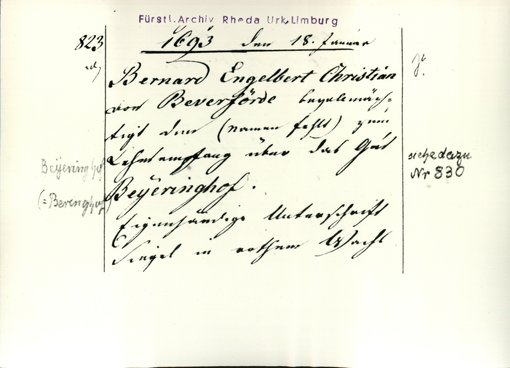 Fürstl. Archiv Rheda Urk. Limburg
823
1693 den 18. Januar
Bernard Engelbert Christian
von Beverförde bevolmäch-
tigt den (namen fehlt) zum
Lehnempfang über das Gut
Beyeringhof.
Eigenhändige Unterschrift
Siegel in rothem Wachs
Beyeringhof
(= Beringhof)
siehe dazu
Nr 830